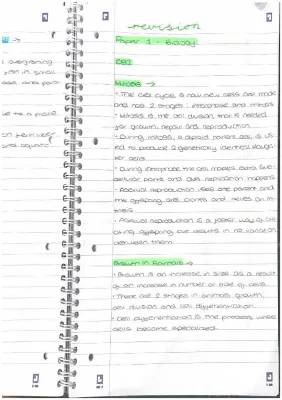 revision
Paper 1 - Biology
CB2
Mitosis →
• The cell cycle is how new cells are made
and has 2 stages: interphase and mitosis
• Mitosis is the cell division that is needed
for growth, repair and reproduction.
• During mitosis, a diploid parent cell is
to produce 2 genetically identical daugh-
ter cells.
• During interphase the cell makes extra sub-
cellular parts and DNA replication happens
• Asexual reproduction uses one parent and
the offspring are clones and relies on mi-
tosis
• Asexual reproduction is a faster way of cre-
ating offspring but results in no variation
between them.
Growth in Animals →
• Growth is an increase in size as a result
of an increase in number or size of cells.
• There are 2 stages in animals growth,
cell division and cell differentiation.
• Cell differentiation is the process where
cells become specialised.